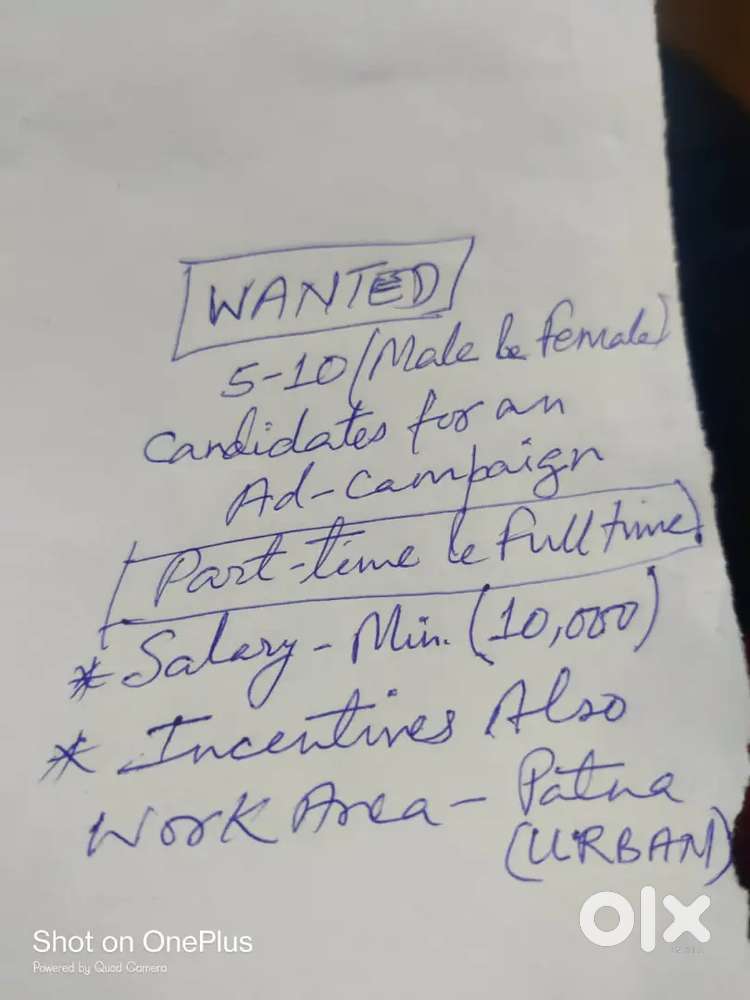 WANTED
5-10 (Male & female)
Candidates for an
Ad-Campaign
Part-time & Full time
* Salary - Min. (10,000)
* Incentives Also
Work Area - Patna
(URBAN)
Shot on OnePlus
Powered by Quad Camera
olx